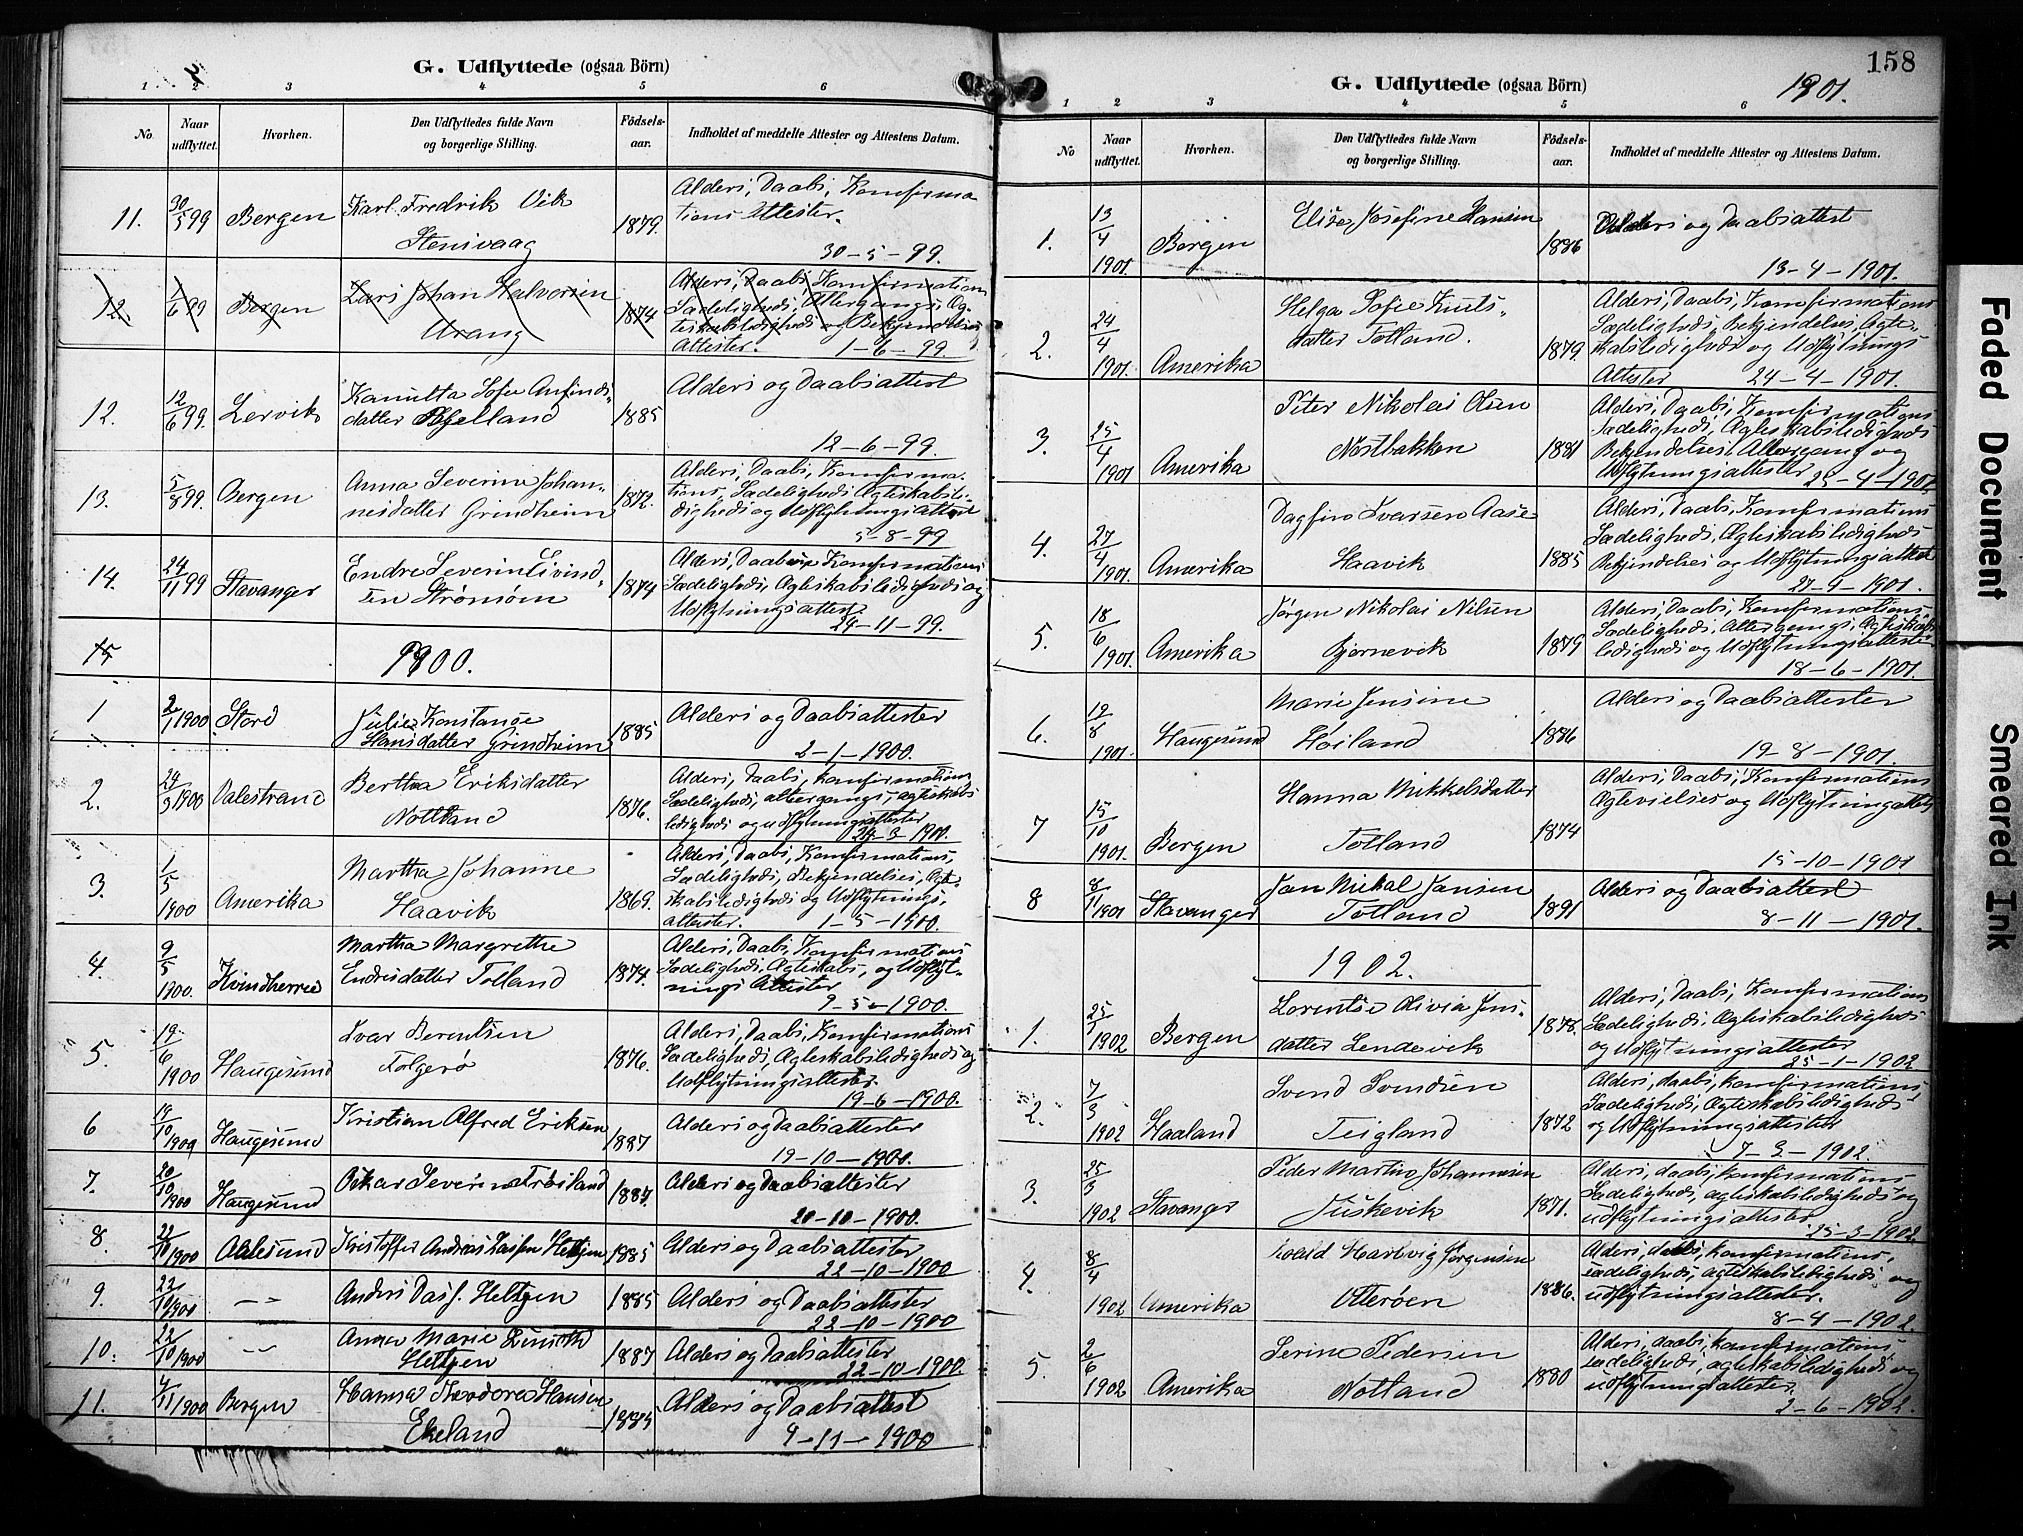 G. Udflyttede (ogsaa Börn)
1 2 3 4 5 6
No. Naar udflyttet. Hvorhen. Den Udflyttedes fulde Navn og borgerlige Stilling. Födsels-aar. Indholdet af meddelte Attester og Attestens Datum.
11. 30/5 99 Bergen Karl Fredrik Vik 1879. Alders, Daabs, Konfirma
Stensvaag tions Attester.
30-5-99.
12. 1/6 99 Bergen Lars Johan Halvorsen 1874 Alders, Daabs, Konfirmations
Vrang Sædeligheds, Altergangs, Ægteskabsledigheds og Bekjendelses
Attester. 1-6-99.
12. 12/6 99. Lervik Kanutta Sofie Anfinds- 1885 Alders og Daabsattest
datter Kjelland
12-6-99.
13. 5/8 99. Bergen Anna Severine Johan- 1872. Alders, Daabs, Konfirma-
nesdatter Grindheim tions, Sædeligheds Ægteskabsle-
digheds og Udflytningsattest
5-8-99
14. 24/11 99 Stavanger Endre Severin Eivind- 1874 Alders, Daabs Konfirmations
sen Strömöm Sædeligheds, Ægteskabsledigheds og
Udflytningsattest.
24-11-99.
15 1900.
1 2/1 1900 Stord Julie Konstanse 1885 Alders og Daabsattester
Hansdatter Grindheim 2-1-1900.
2. 24/3 1900 Valestrand Bertha Eriksdatter 1876. Alders, Daabs, konfirmations
Notland Sædeligheds, altergangs, ægteskabs
ledigheds og udflytningsattester
24-3-1900.
3. 1/5 1900 Amerika Martha Johanne 1869. Alders, Daabs, Konfirmations,
Haavik Sædeligheds, Bekjendelses, Ægte-
skabsledigheds og Udflytnings,
attester. 1-5-1900.
4. 9/5 1900. Kvindherred Martha Margrethe 1874. Alders, Daabs, Konfirmations
Endresdatter Totland Sædeligheds, Ægteskabs, og Udflyt-
nings Attester
9-5-1900.
5. 19/6 1900 Haugesund Ivar Berentsen 1876. Alders, Daabs, Konfirmations
Folgerö Sædeligheds, Ægteskabsledigheds og
Udflytningsattester.
19-6-1900.
6 19/10 1900 Haugesund Kristian Alfred Eriksen 1887 Alders og Daabsattester
19-10-1900.
7. 20/10 1900 Haugesund Oskar Severinsen 1887. Alders og Daabsattester
20-10-1900.
8. 22/10 1900 Aalesund Kristoffer Andreas 1885 Alders og Daabsattester
22-10-1900
9. 22/10 1900 -"- Anders 1885 Alders og Daabsattester
22-10-1900
10. 22/10 1900 -"- Anna Marie 1887 Alders og Daabsattester
22-10-1900.
11. 9/11 1900 Bergen Hanna Teodorea Hansen Alders og Daabsattest
Ekeland 9-11-1900
158
G. Udflyttede (ogsaa Börn) 1901.
1 2 3 4 5 6
No Naar udflyttet. Hvorhen. Den Udflyttedes fulde Navn og borgerlige Stilling. Födsels-aar. Indholdet af meddelte Attester og Attestens Datum.
1. 13/4 1901. Bergen Elise Josefine Hansen 1886 Alders og Daabsattest
13-4-1901.
2. 24/4 1901. Amerika Helga Sofie Knuts- 1879 Alders, Daabs, Konfirmations
datter Totland. Sædeligheds, Bekjendelses, Ægte-
skabsledigheds og Udflytnings
Attester 24-4-1901.
3. 25/4 1901 Amerika Peter Nikolai Olsen 1881 Alders, Daabs, Konfirmations
Nostbakken Sædeligheds, Ægteskabsledigheds
Bekjendelses, Altergang og
Udflytningsattester 25-4-1901.
4. 27/4 1901. Amerika Dagfin Ivarsen Aase 1885 Alders, Daabs, Konfirmations
Haavik Sædeligheds, Ægteskabsledigheds
Bekjendelses og Udflytningsattest
27-4-1901.
5. 18/6 1901. Amerika Jørgen Nikolai Nilsen 1879 Alders, Daabs, Konfirmations,
Bjørnevik Sædeligheds, Altergangs, Ægteskabs
ledigheds og Udflytningsattester
18-6-1901.
6. 19/8 1901. Haugesund Marie Jensine 1886 Alders og Daabsattester
Høiland 19-8-1901.
7 15/10 1901. Bergen Hanna Mikkelsdatter 1874 Alders, Daabs, Konfirmations
Totland Ægtevielses og Udflytningattest
15-10-1901
8 8/11 1901 Stavanger Jan Mikal Jansen 1891 Alders og Daabsattest
Totland 8-11-1901.
1902.
1. 25/1 1902 Bergen Lorentse Olivia Jens- 1878. Alders, Daabs, Konfirmations
datter Lendevik Sædeligheds, Ægteskabsledigheds
og Udflytningsattester
25-1-1902.
2. 7/3 1902 Haaland Svend Svendsen 1872 Alders, daabs, konfirmations
Teigland Sædeligheds, Ægteskabsledigheds
og Udflytningsattester
7-3-1902.
3. 25/3 1902 Stavanger Peder Martin Johannesen 1871. Alders, daabs, konfirmations
Juskevik Sædeligheds, ægteskabsledigheds og
udflytningsattester
25-3-1902
4. 8/4 1902 Amerika Hartvig Jørgensen 1886. Alders, daabs, konfirmations,
Otterøen sædeligheds, ægteskabsledigheds og
udflytningsattester.
8-4-1902.
5. 2/6 1902 Amerika Serine Pedersen 1880 Alders, daabs, konfirmations,
Notland sædeligheds, ægteskabsledigheds og
udflytningsattester.
2-6-1902.
Faded Document
Smeared Ink